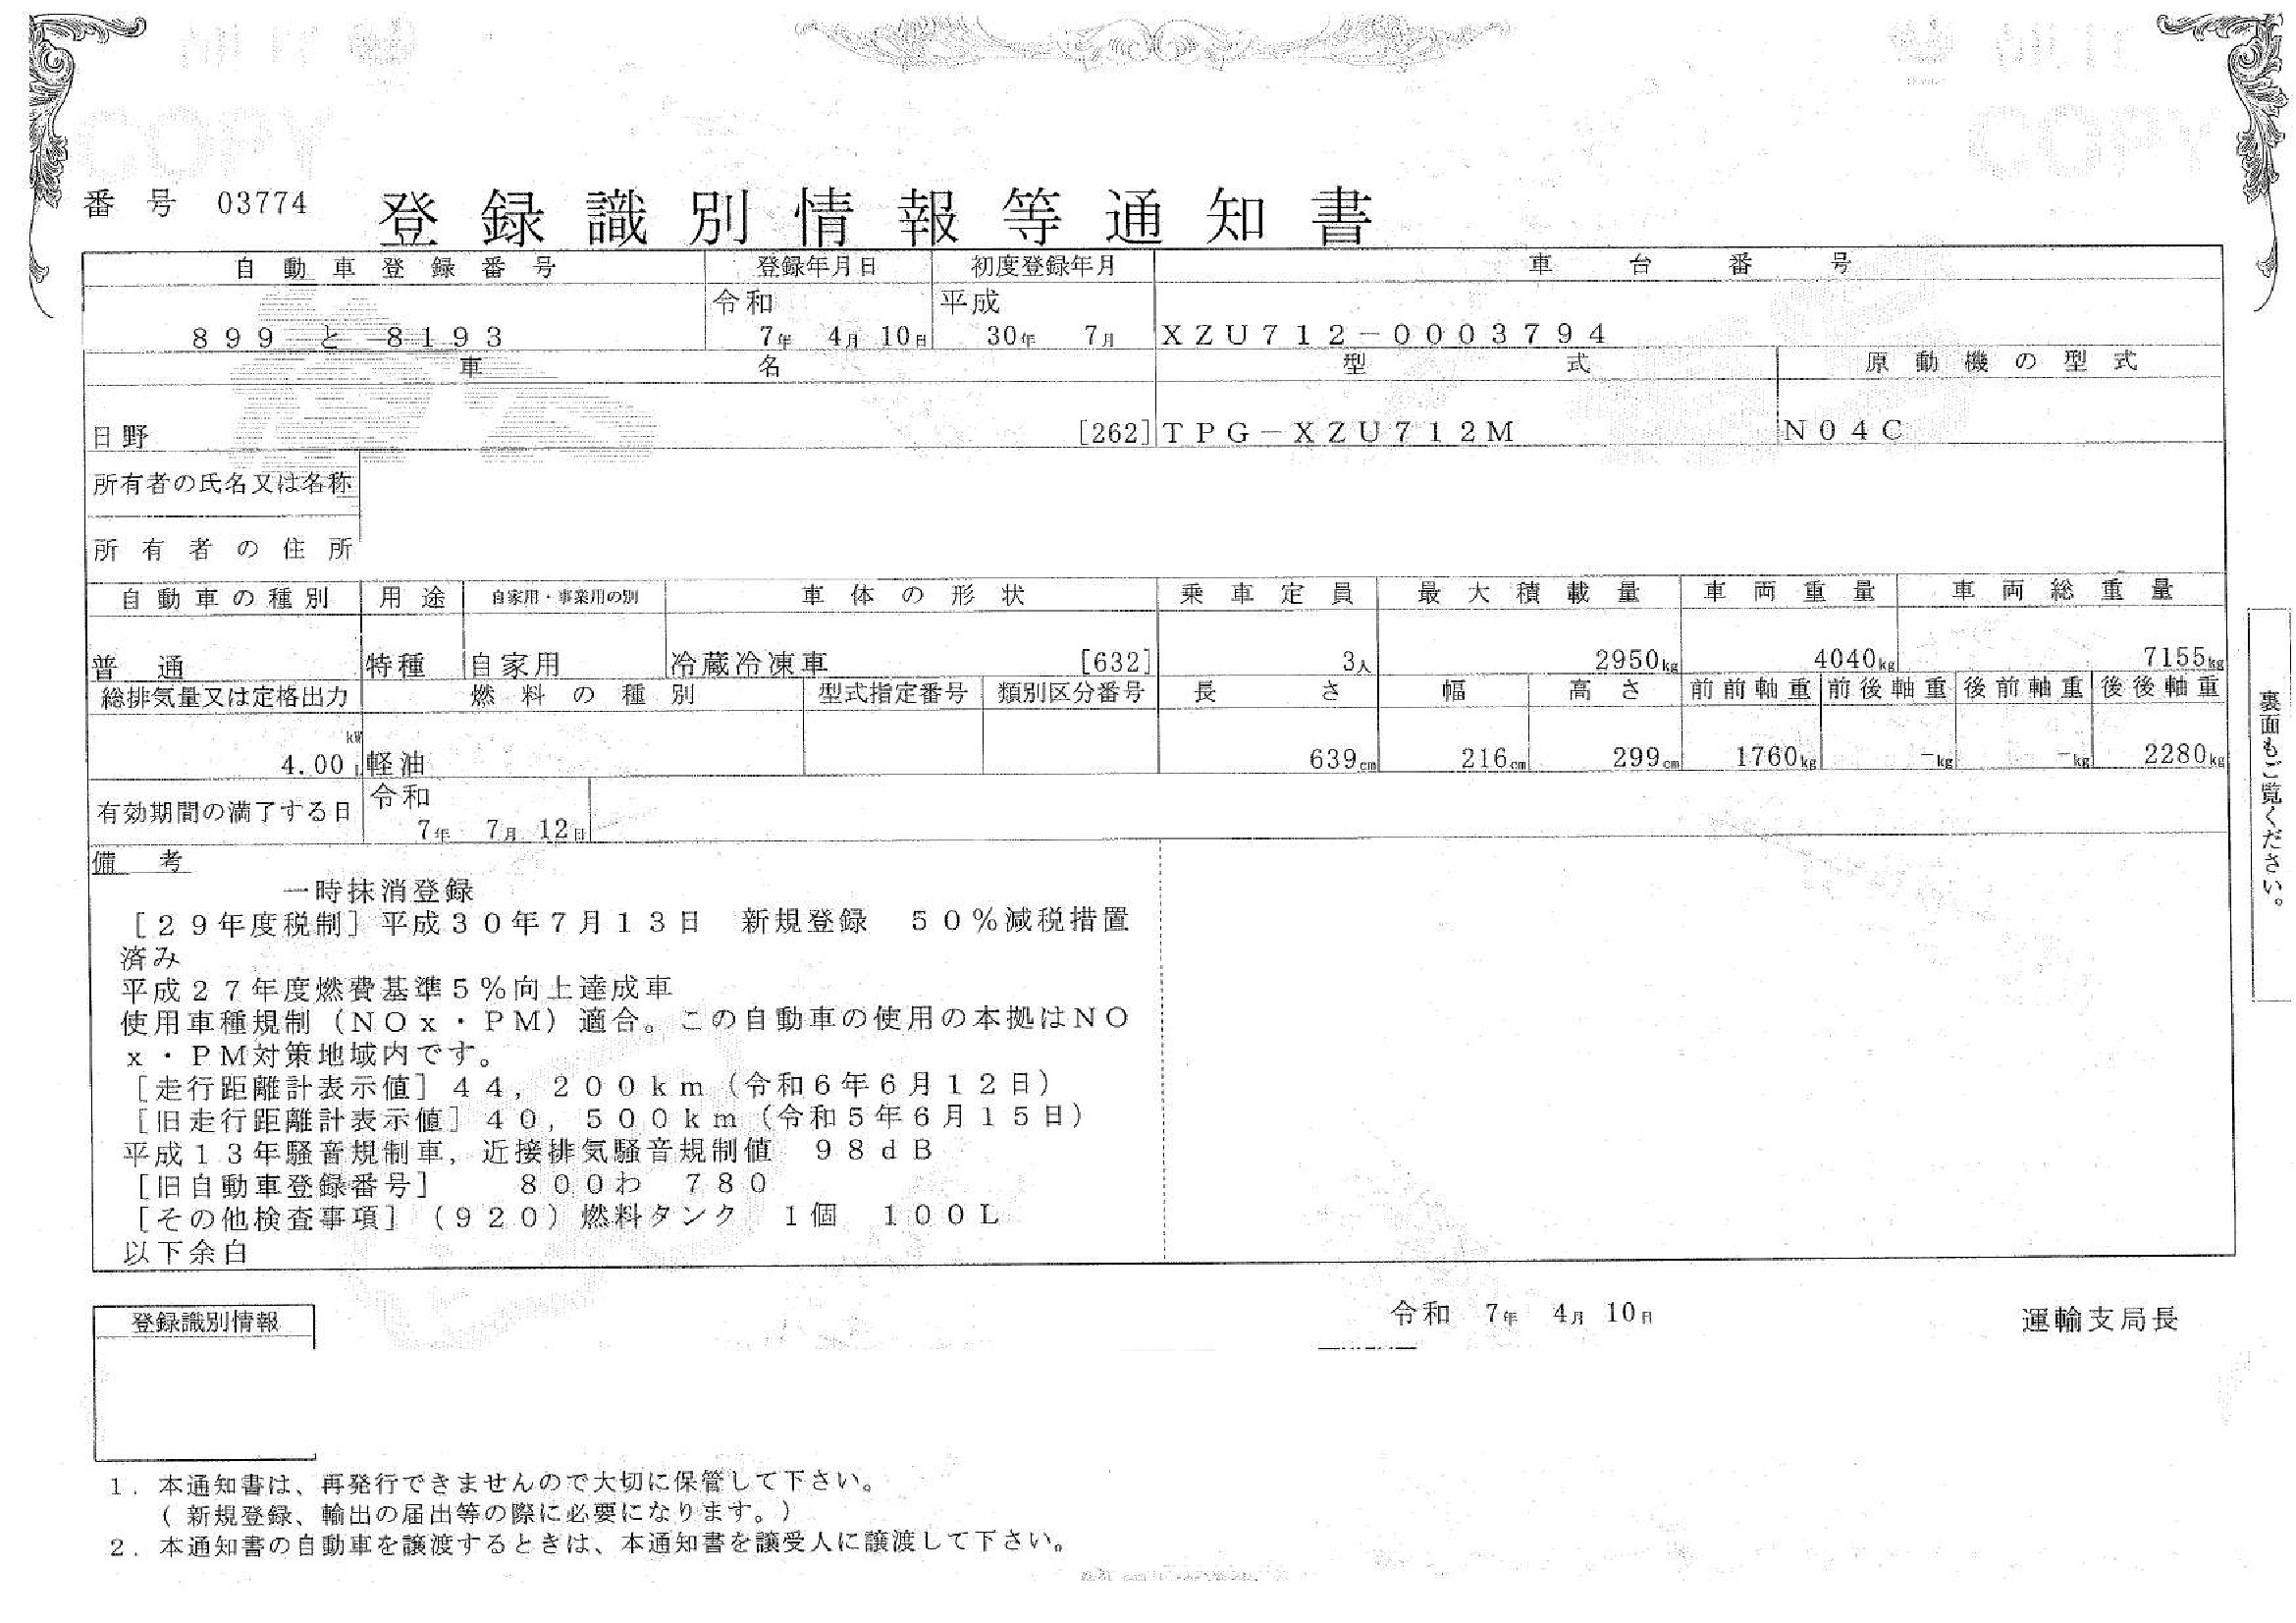 COPY
COPY
番 号 03774 登録識別情報等通知書
自動車登録番号 登録年月日 初度登録年月 車台番号
令和 平成
899 と 8193 7年 4月 10日 30年 7月 XZU712-0003794
車名 型式 原動機の型式
日野 [262] TPG-XZU712M N04C
所有者の氏名又は名称
所有者の住所
自動車の種別 用途 自家用・事業用の別 車体の形状 乗車定員 最大積載量 車両重量 車両総重量
普通 特種 自家用 冷蔵冷凍車 [632] 3人 2950kg 4040kg 7155kg
総排気量又は定格出力 燃料の種別 型式指定番号 類別区分番号 長さ 幅 高さ 前前軸重 前後軸重 後前軸重 後後軸重
kW
4.00 l 軽油 639cm 216cm 299cm 1760kg -kg -kg 2280kg
有効期間の満了する日 令和
7年 7月 12日
備考
一時抹消登録
[29年度税制]平成30年7月13日 新規登録 50%減税措置
済み
平成27年度燃費基準5%向上達成車
使用車種規制(NOx・PM)適合。この自動車の使用の本拠はNO
x・PM対策地域内です。
[走行距離計表示値]44,200km(令和6年6月12日)
[旧走行距離計表示値]40,500km(令和5年6月15日)
平成13年騒音規制車,近接排気騒音規制値 98dB
[旧自動車登録番号] 800わ 780
[その他検査事項](920)燃料タンク 1個 100L
以下余白
裏面もご覧ください。
登録識別情報
令和 7年 4月 10日 運輸支局長
1.本通知書は、再発行できませんので大切に保管して下さい。
(新規登録、輸出の届出等の際に必要になります。)
2.本通知書の自動車を譲渡するときは、本通知書を譲受人に譲渡して下さい。